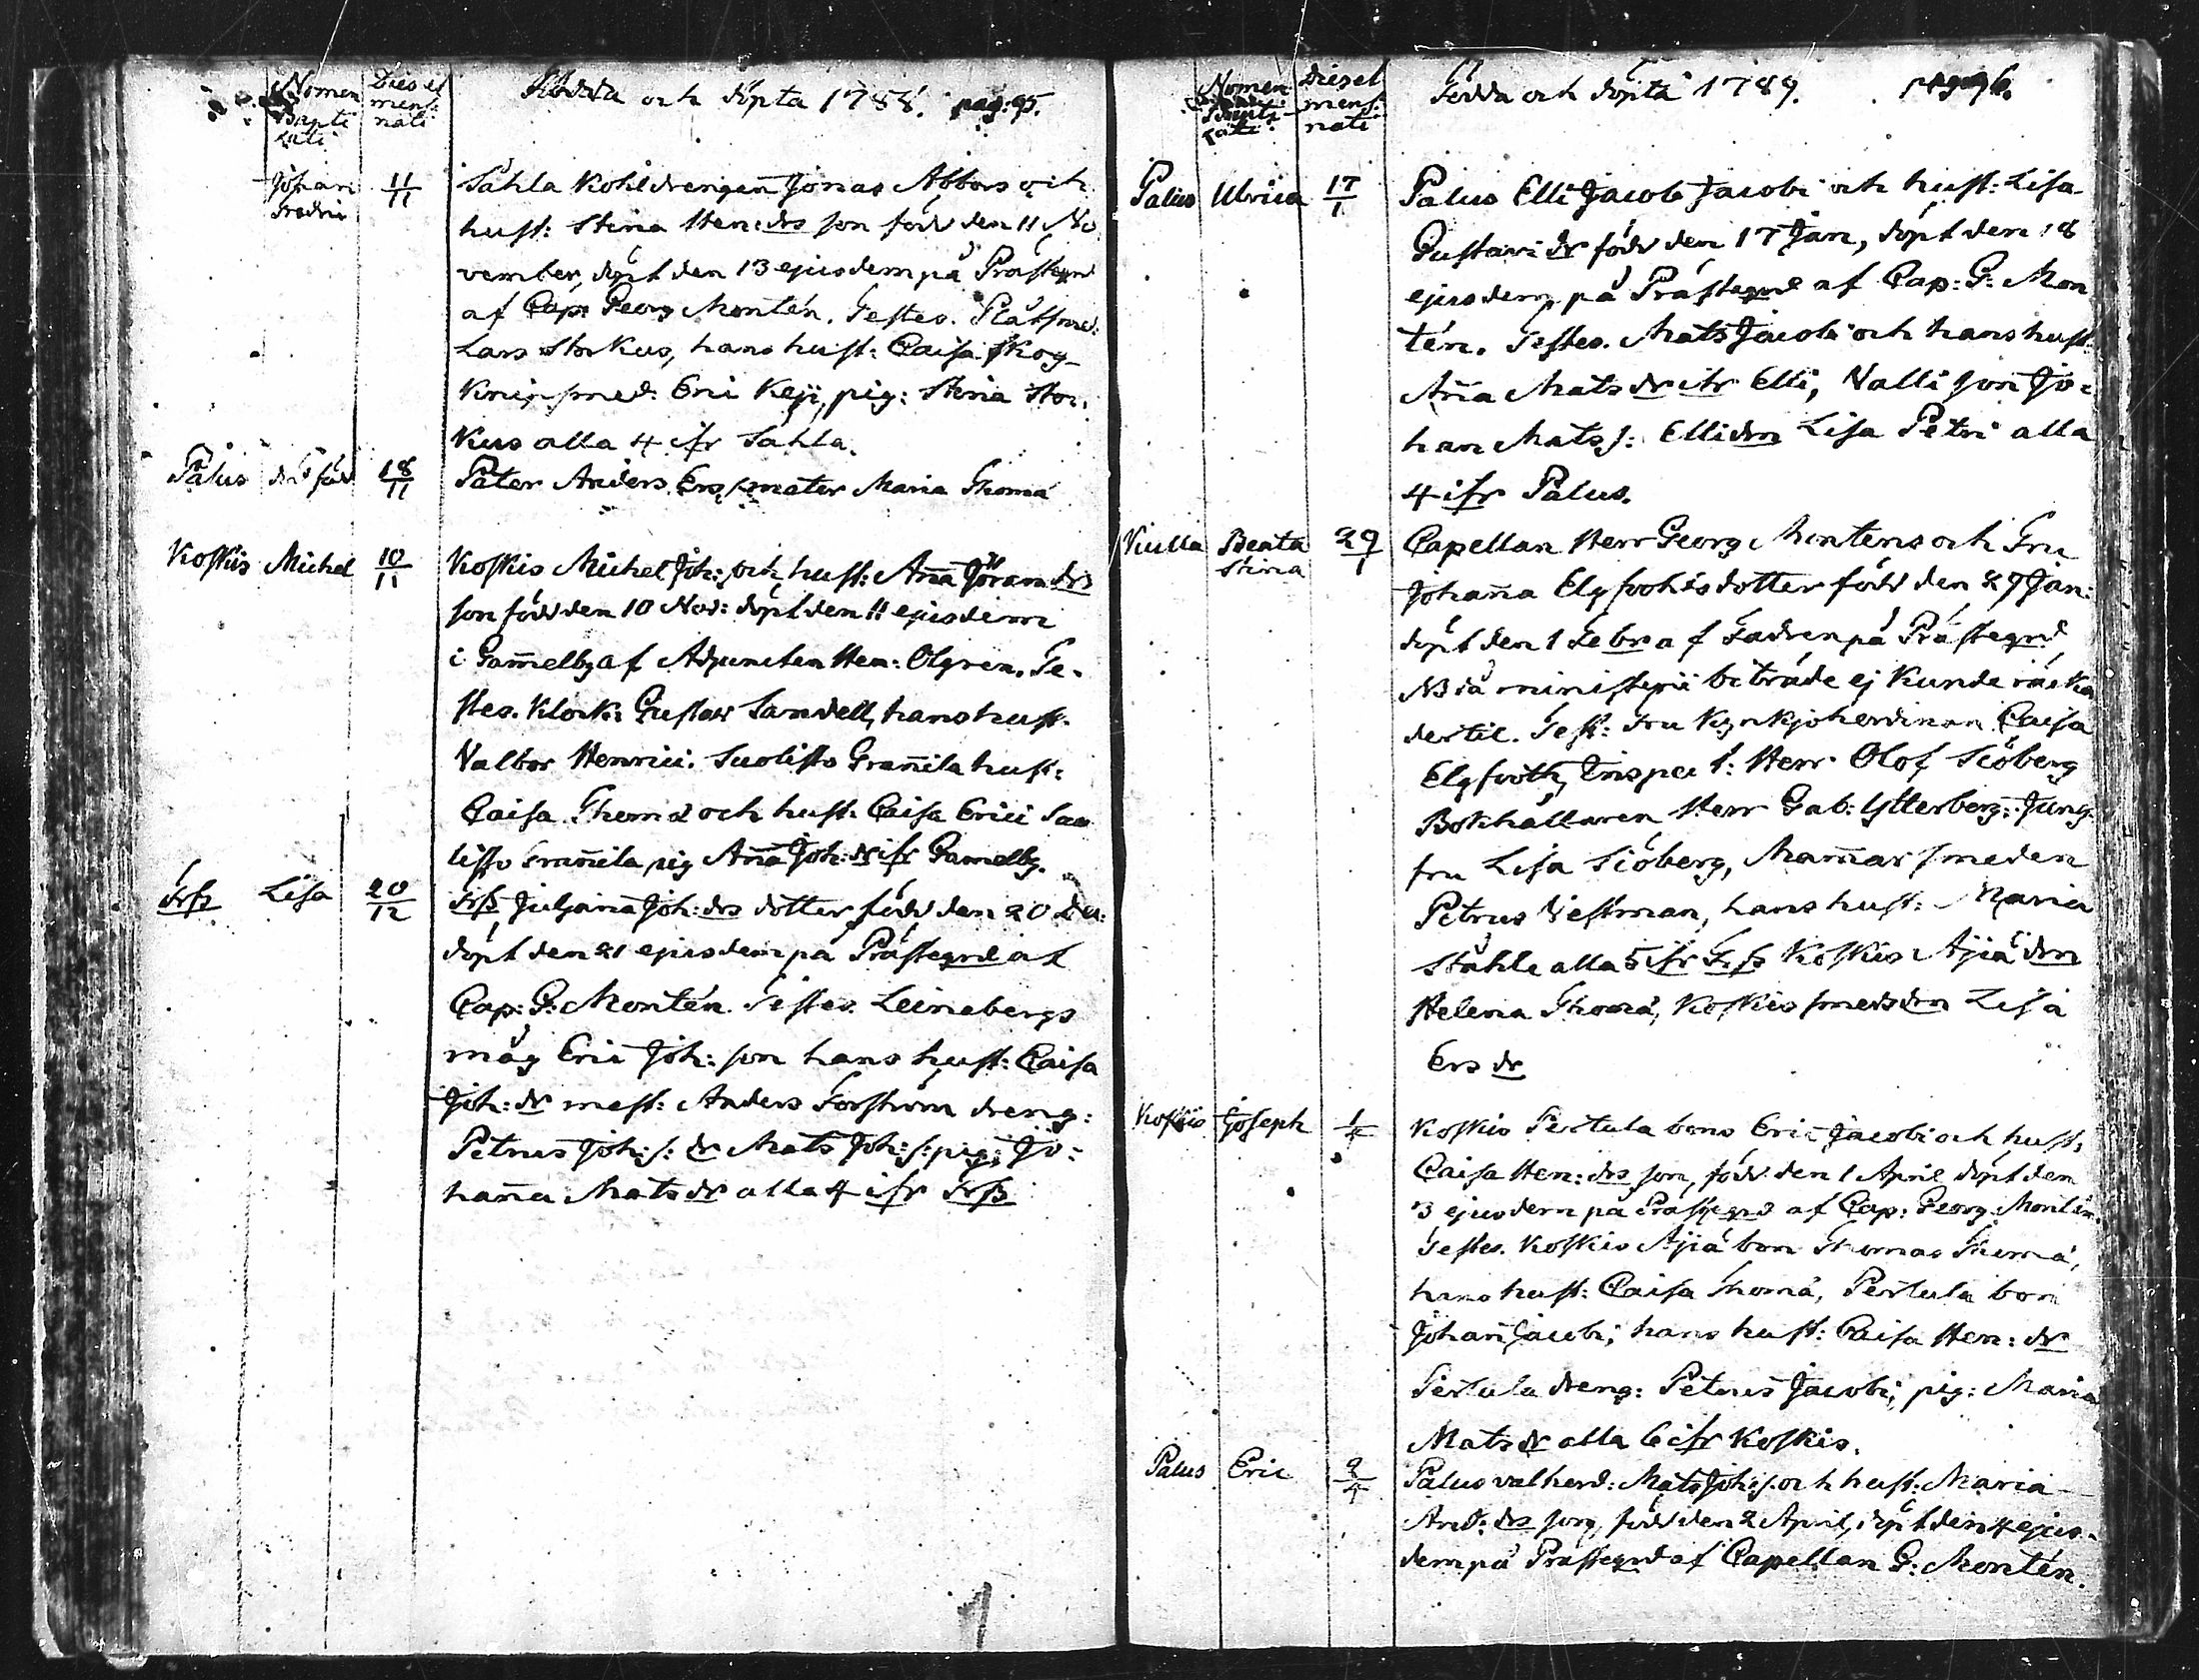 Nomen Bapti zati
Dies et mens: nati
Födda och döpta 1788. pag: 95.
Johan Fredric 11/11
Sahla Kohldrengen Jonas Abbors och
hust: Stina Hen: drs son född den 11 No
vember, döpt den 13 ejusdem på Prästegrd
af Cap: Georg Montén. Testes. Plåtsmed:
Lars Storkus, hans hust: Caisa Skog
Knipsmed: Eric Keji, pig: Stina Stor:
kus alla 4 ifr Sahla.
Palus 18/11
Pater Anders Ers s: mater Maria Thomæ
Koskis Michel 10/11
Koskis Michel Joh: s: och hust: Anna Jöran drs
son född den 10 Nov: döpt den 11 ejusdem
i Gammelby af Adjuncten Hen: Olgren. Te-
stes. Klock: Gustav Sandell, hans hust:
Valbor Henrici. Suolisto Grannila hust:
Caisa Thomæ och hust: Caisa Erici Suo
listo Grannila pig Anna Joh: dr ifr Gamelby.
Frß Lisa 20/12
Frß Juljana Joh: drs dotter född den 20 Dec:
döpt den 21 ejusdem på Prästegrd af
Cap: G: Montén. Testes. Leinebergs
måg Eric Joh: son hans hust: Caisa
Joh: dr mest: Anders Forström dreng:
Petrus Joh: s: dr Mats Joh: s: pig: Jo:
hanna Mats dr alla 4 ifr Frß
Nomen Bapti zati
Dies et mens: nati
Födda och döpta 1789. pag 96.
Palus Ulrica 17/1
Palus Elli Jacob Jacobi och hust: Lisa
Gustavi dr född den 17 Jan, döpt den 18
ejusdem på Prästegrd af Cap: G: Mon
tén. Testes. Mats Jacobi och hans hust:
Anna Mats dr ifr Elli, Valli son Jo:
han Mats s: Elli drn Lisa Petri alla
4 ifr Palus.
Kulla Beata Stina 29/1
Capellan Herr Georg Montens och Fru
Johanna Elgfooths dotter född den 29 Jan:
döpt den 1 Febr af Fadren på Prästegrd
NB då ministerii biträde ej kunde räcka
dertil. Test: Fru Kyrkjoherdinnan Caisa
Elgfooth, Inspect: Herr Olof Siöberg
Bokhållaren Herr Gab: Ytterberg: Jung
fru Lisa Siöberg, Mannar smeden
Petrus Vestman, hans hust: Maria
Ståhle alla 5 ifr Frß Koskis Äjiä drn
Helena Thomæ, Koskis smeds drn Lisa
Ers dr
Koskis Joseph 1/4
Koskis Pertula bons Eric Jacobi och hust:
Caisa Hen: drs son, född den 1 April döpt den
3 ejusdem på Prästegrd af Cap: Georg Montén.
Testes. Koskis Äjiä bon Thomas Thomæ,
hans hust: Caisa Thomæ, Pertula bon
Johan Jacobi, hans hust: Caisa Hen: dr
Pertula dreng: Petrus Jacobi, pig: Maria
Mats dr alla 6 ifr Koskis.
Palus Eric 2/4
Palus valherd: Mats Joh: s: och hust: Maria
And: drs son, född den 2 April, döpt den 4 ejus-
dem på Prästegrd af Capellan G: Montén.